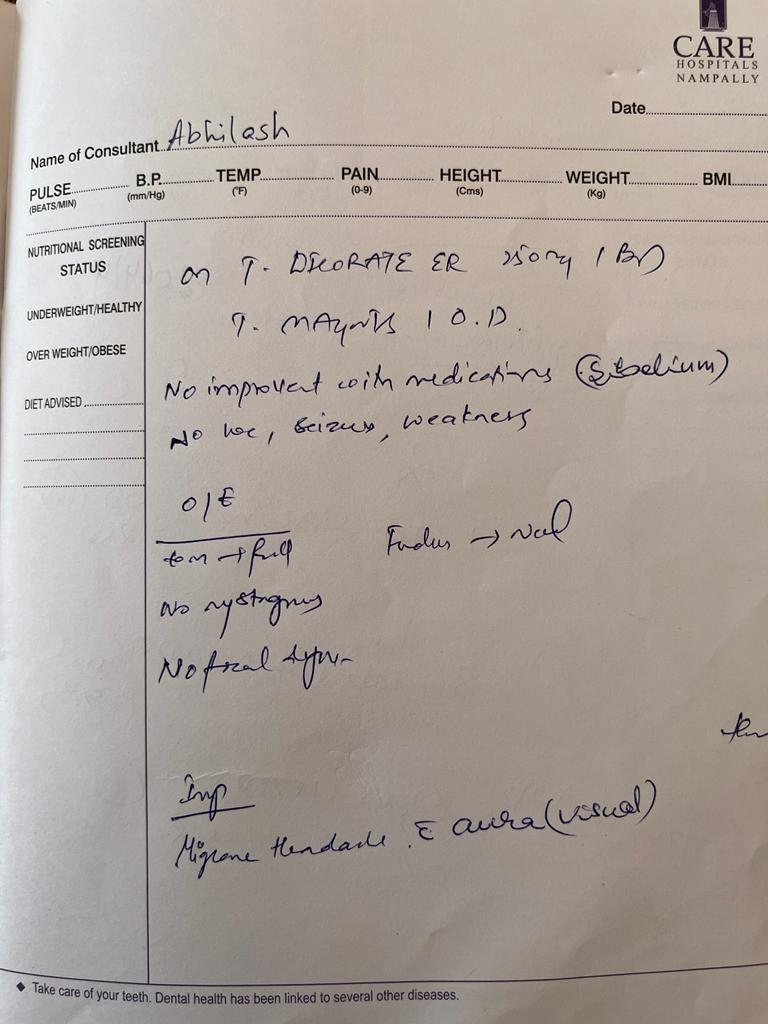 CARE
HOSPITALS
NAMPALLY
Date
Name of Consultant Abhilash
PULSE B.P. TEMP PAIN HEIGHT WEIGHT BMI
(BEATS/MIN) (mm/Hg) (°F) (0-9) (Cms) (Kg)
NUTRITIONAL SCREENING
STATUS
UNDERWEIGHT/HEALTHY
OVER WEIGHT/OBESE
DIET ADVISED
on T. DICORATE ER 250mg 1 BD
T. 1 O.D.
No improvent with medications (Sibelium)
No loc, seizures, weakness
O/E
EOM → full Fundus → Nal
No nystagmus
No focal
Imp
Migrane Headache c̄ aura (visual)
◆ Take care of your teeth. Dental health has been linked to several other diseases.